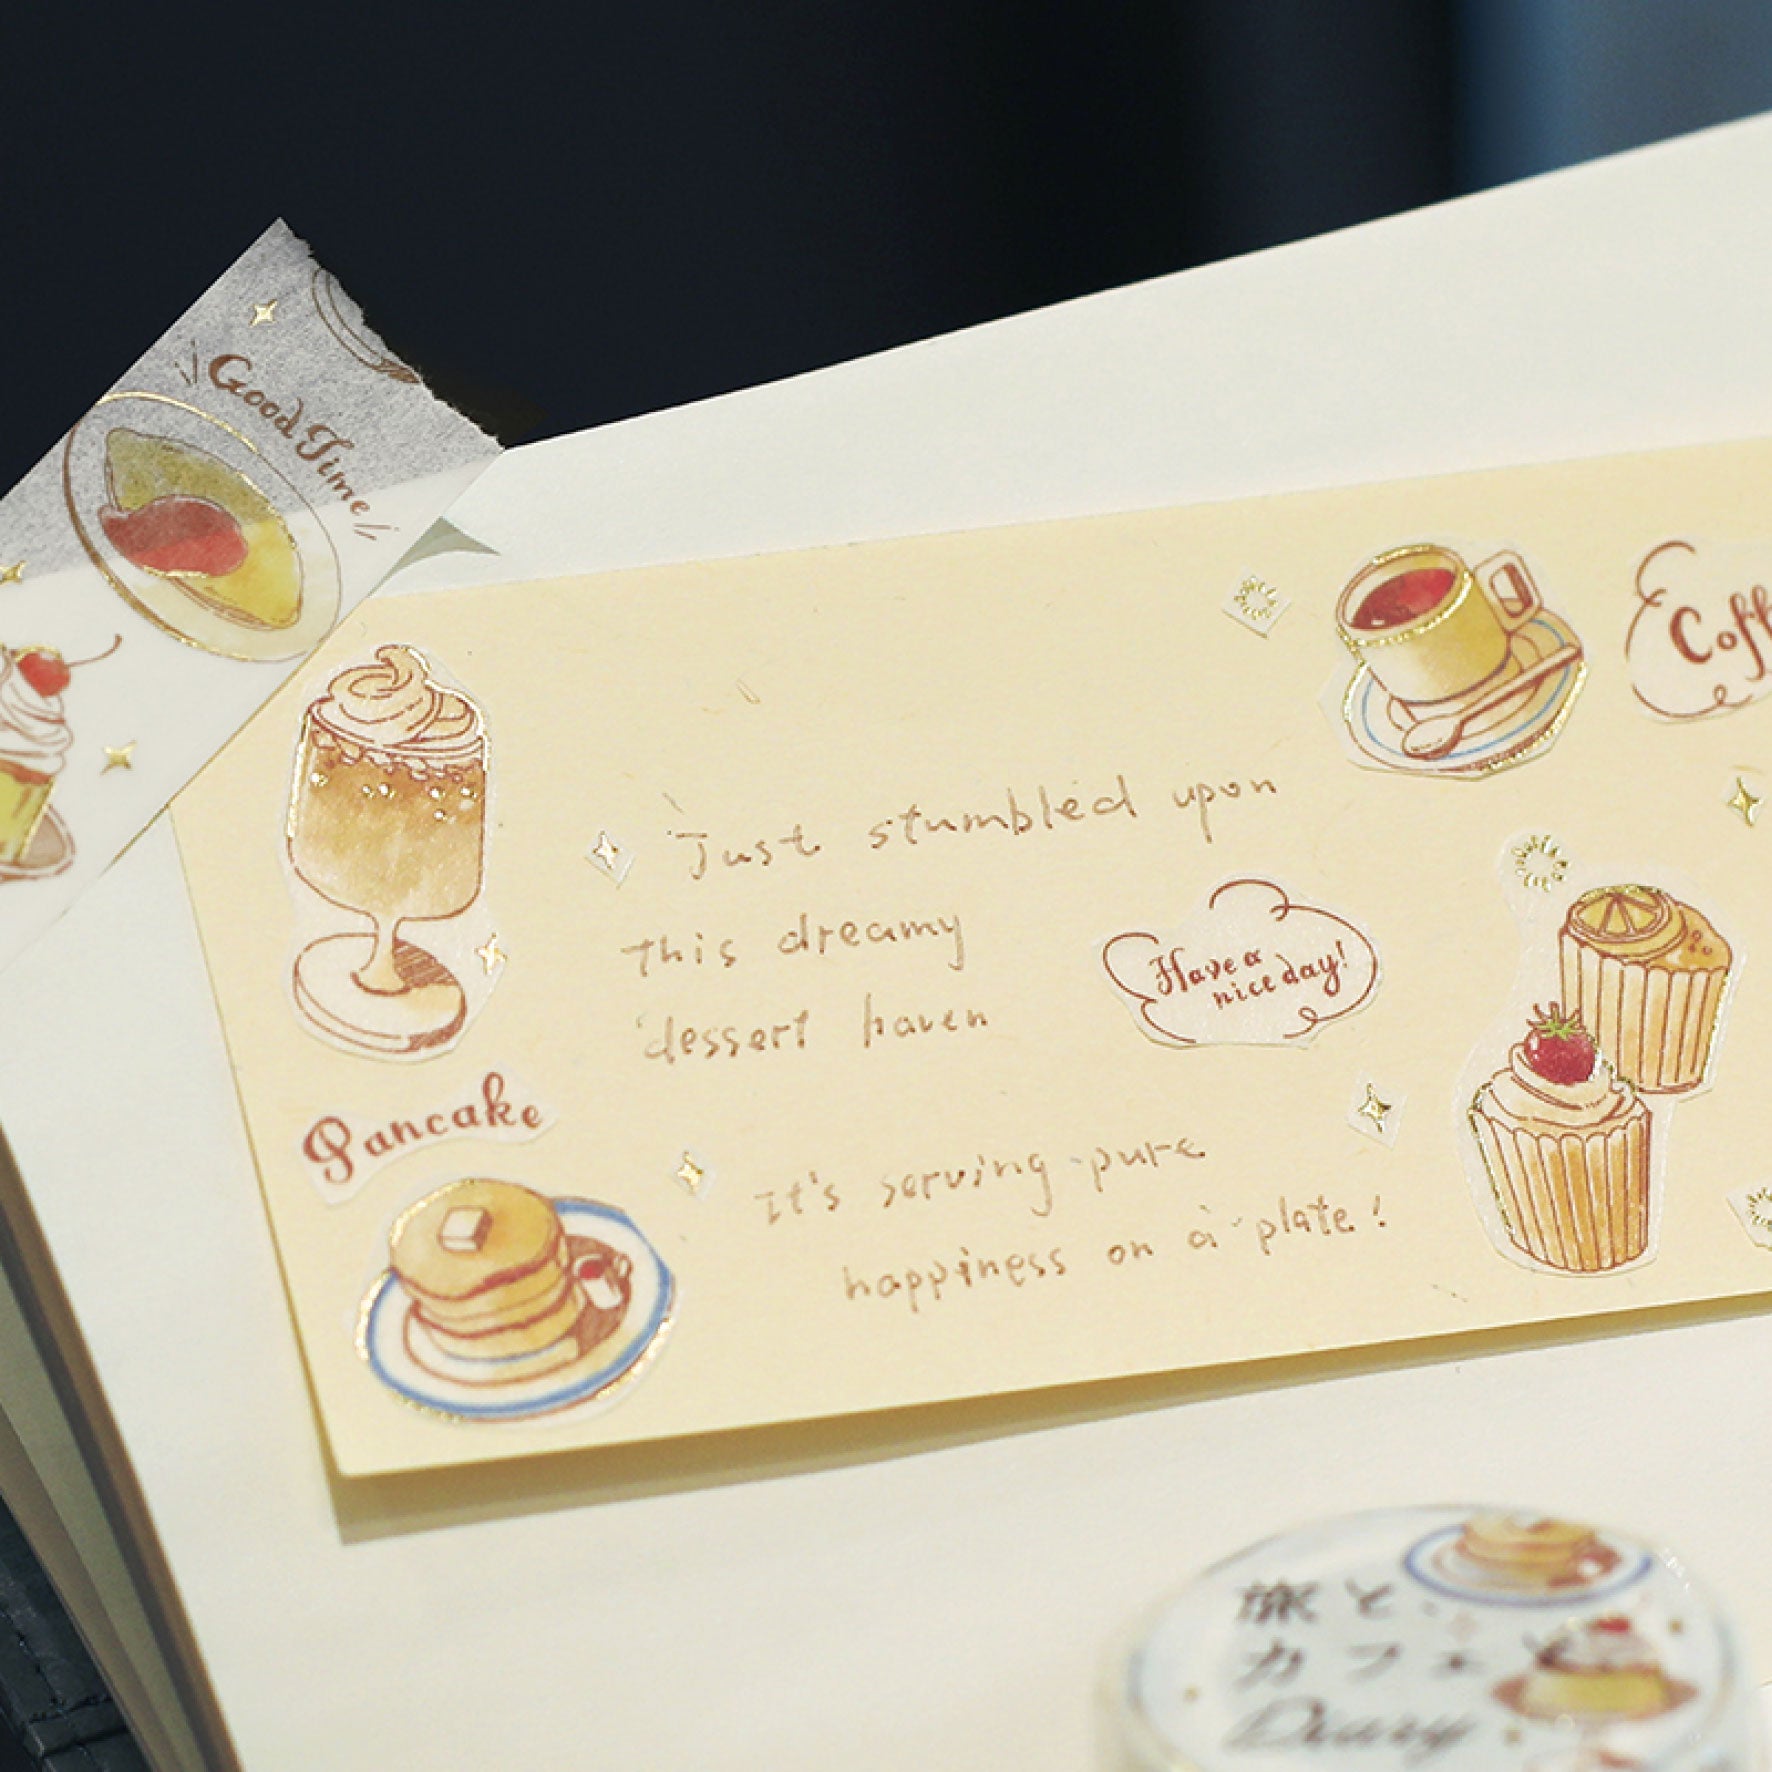 Good Time
Coff
Just stumbled upon
this dreamy
dessert haven
Have a
nice day!
Pancake
It's serving pure
happiness on a plate!
旅と
カフェと
Diary